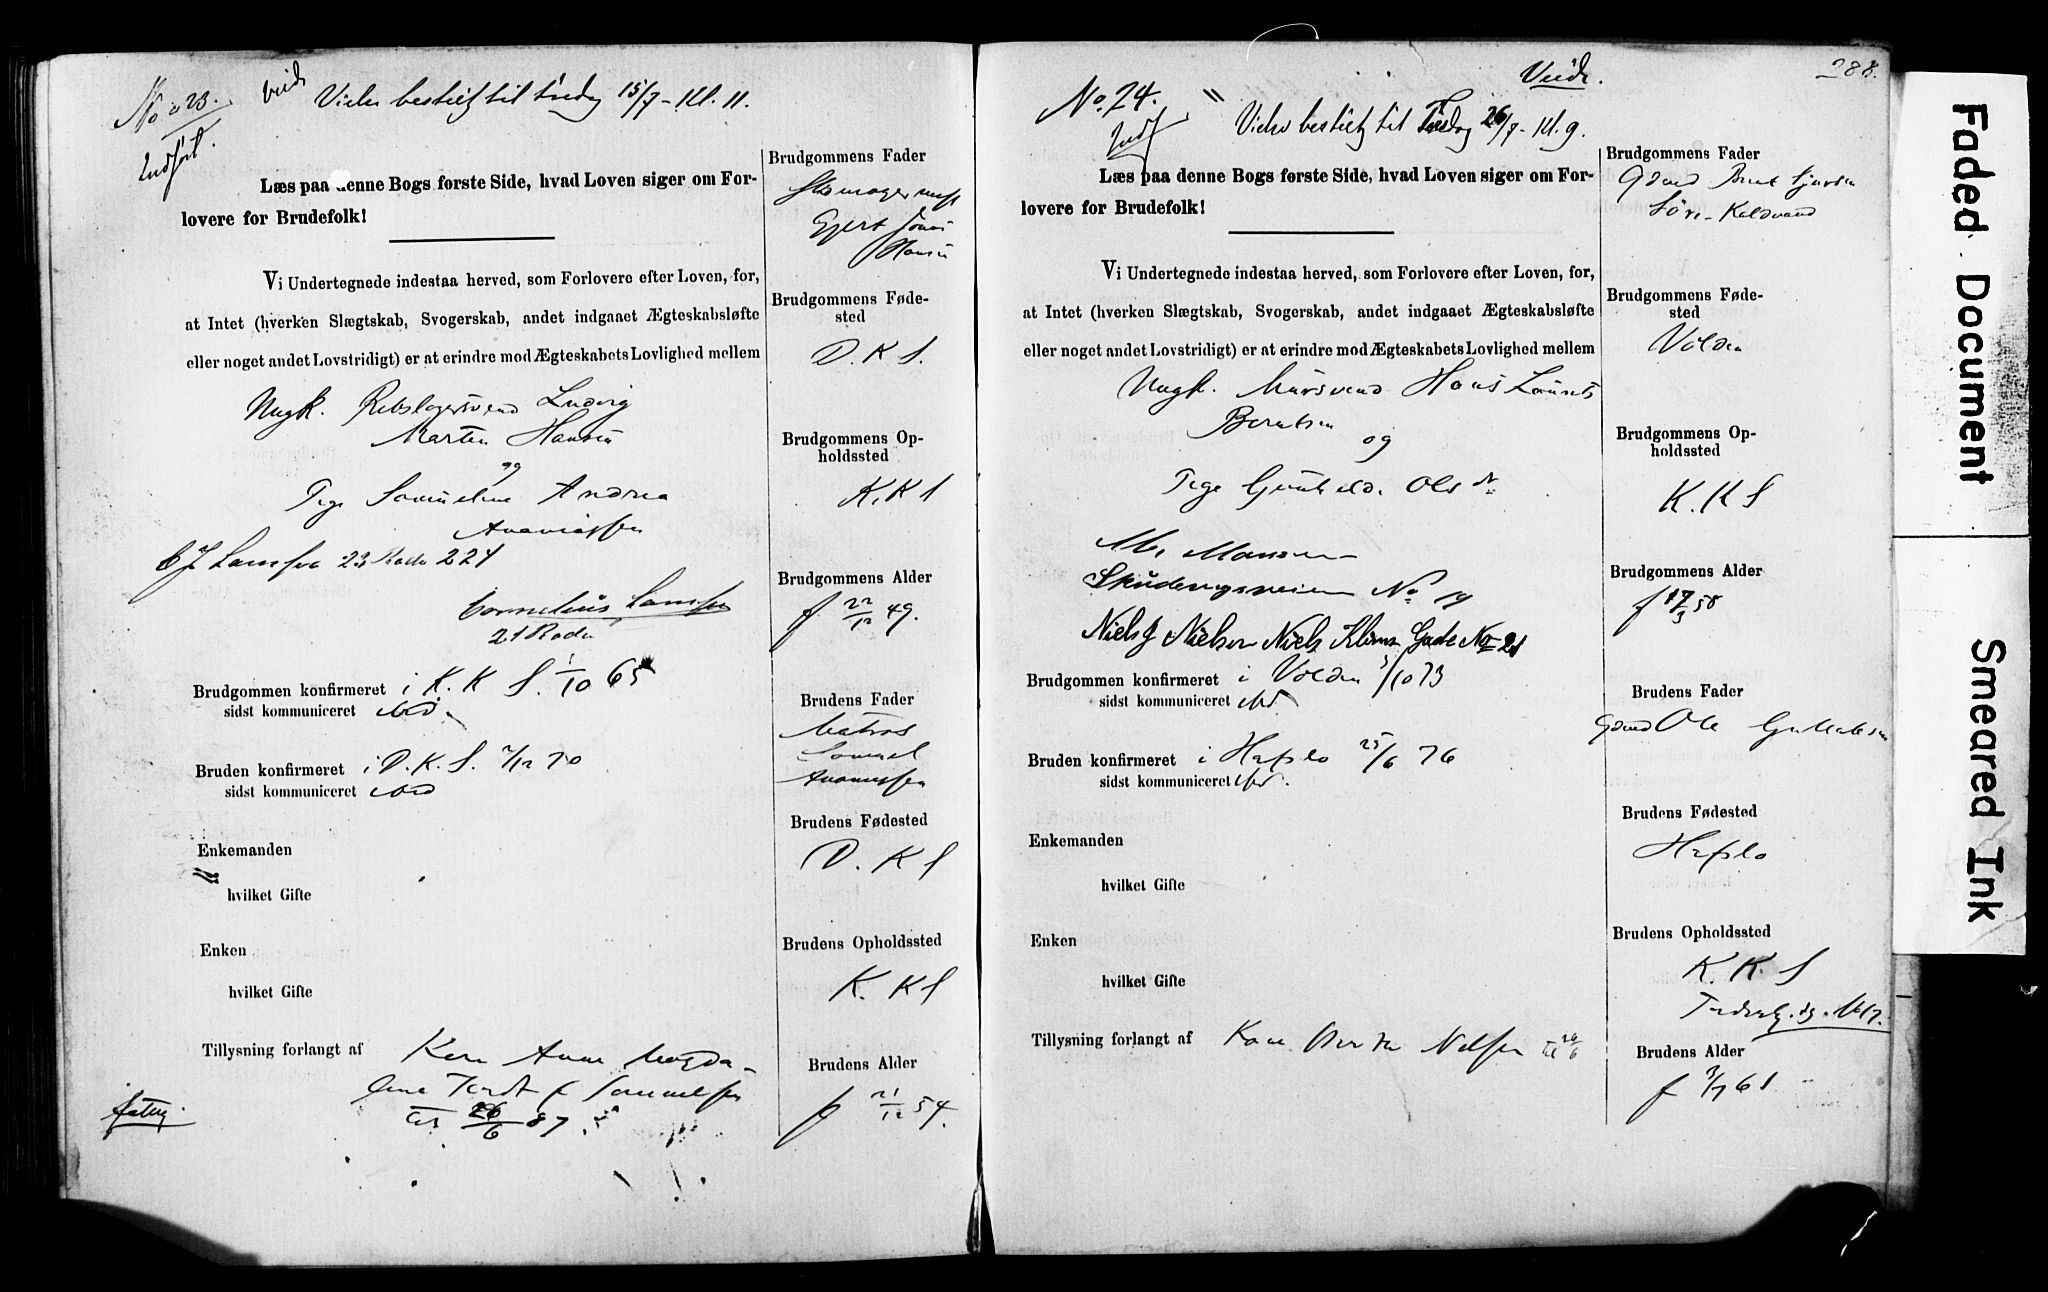 No 23.
Viede
Vielse bestilt til fredag 15/7 - Kl. 11.
Indført.
Læs paa denne Bogs første Side, hvad Loven siger om For-
lovere for Brudefolk!
Vi Undertegnede indestaa herved, som Forlovere efter Loven, for,
at Intet (hverken Slægtskab, Svogerskab, andet indgaaet Ægteskabsløfte
eller noget andet Lovstridigt) er at erindre mod Ægteskabets Lovlighed mellem
Ungk. Rebslagersvend Ludvig
Marten Hansen
og
Pige Samueline Andrea
Ananiassen
23 Rode 224
Cornelius
21 Rode
Brudgommen konfirmeret i K. K S. 1/10 65
sidst kommuniceret
Bruden konfirmeret i D. K. S. 7/12 70
sidst kommuniceret
Enkemanden
hvilket Gifte
Enken
hvilket Gifte
Tillysning forlangt af Kone Anne Magda-
lene f Samuelsen
til 26/6 87
Brudgommens Fader
Skomager
Ejert Jonas
Hansen
Brudgommens Føde-
sted
D. K S.
Brudgommens Op-
holdssted
K. K S
Brudgommens Alder
f 22/12 49.
Brudens Fader
Matros
Samuel
Ananiassen
Brudens Fødested
D. K S
Brudens Opholdssted
K. K S
Brudens Alder
f 21/12 54.
288.
Viede.
No. 24.
Indf
Vielse bestilt til Tirsdag 26/7 - Kl. 9.
Læs paa denne Bogs første Side, hvad Loven siger om For-
lovere for Brudefolk!
Vi Undertegnede indestaa herved, som Forlovere efter Loven, for,
at Intet (hverken Slægtskab, Svogerskab, andet indgaaet Ægteskabsløfte
eller noget andet Lovstridigt) er at erindre mod Ægteskabets Lovlighed mellem
Ungk. Mursvend Hans Laurits
Berntsen
og
Pige Gunhilda Olsdr
M. Monsen
Skudevigsveien No 19
Niels J Nielsen Niels Klims Gade No 21
Brudgommen konfirmeret i Volden 5/10 73
sidst kommuniceret
Bruden konfirmeret i Hafslo 25/6 76
sidst kommuniceret
Enkemanden
hvilket Gifte
Enken
hvilket Gifte
Tillysning forlangt af Kone Nilsen til 26/6
Brudgommens Fader
Gdmd Bernt
Brudgommens Føde-
sted
Volden
Brudgommens Op-
holdssted
K. K S
Brudgommens Alder
f 17/3 58
Brudens Fader
Gdmd Ole
Brudens Fødested
Hafslo
Brudens Opholdssted
K K. S
Brudens Alder
f 3/7 61
Faded Document
Smeared Ink